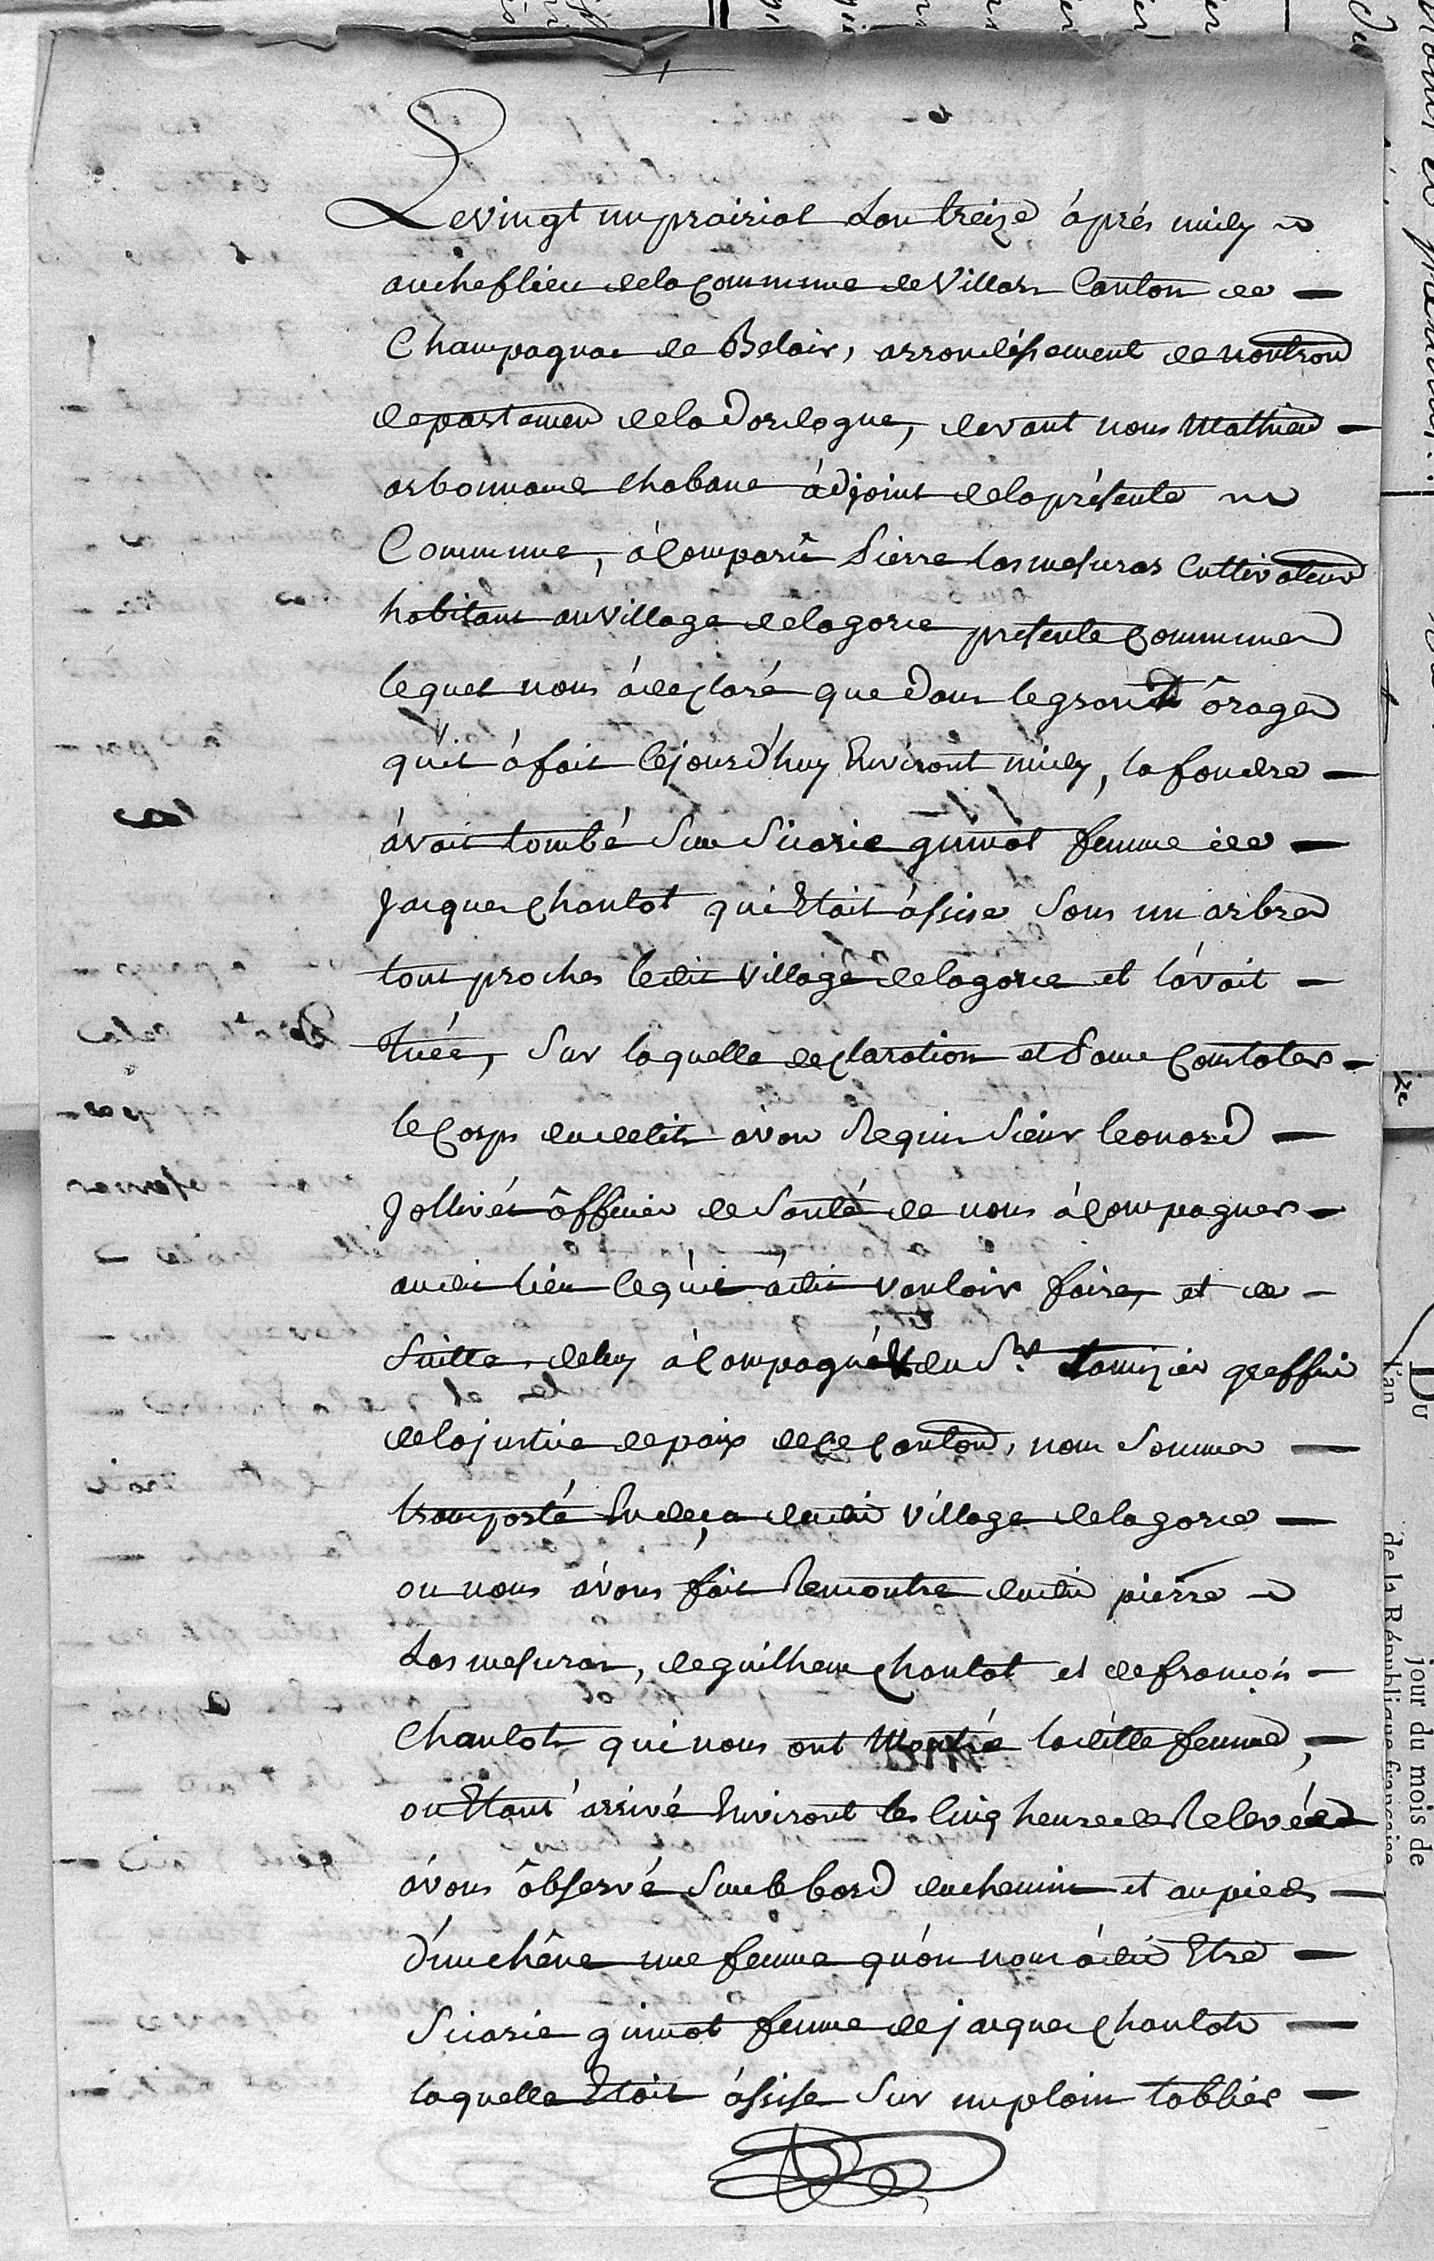 Le vingt un prairial l'an treize àprés midy
au cheflieu de la Commune de Villars Canton de
Champagnac de Belair, arrondissement de nontron
departemen de la Dordogne, devant nous Mathieu
arbonnaud chabane àdjoint de la présente
Commune, à Comparû Pierre Lasmesuras Cultivateur
habitant au village de lagorce presente Commune
lequel nous à déclaré que dans le grand ôrage
qu'il à fait Cejourd'huy Environt midy, la foudre
àvait tombé Sur Sicarie guinot femme de
Jacque Chantot qui Etait àssise Sous un arbre
tout proches ledit Village de lagorce et l'àvait
tuée, Sur laquelle declaration et Pour Constater
le Corps du delit àvon Requis Sieur leonard
Jollivét ôfficier de Santé de nous àCompagner
audit lieu Ce qu'il à dit vouloir faire, et de
Suitte de luy àCompagné et du Sr. Lamizier greffier
de la justice de paix de Ce Canton, nous Somme
transporté En deça dudit village de lagorce
ou nous àvons fait Rencontre dudit pierre
Lasmesuras, de guilhem Chantot et de françois
Chantot qui nous ont Montré la ditte femme,
ou Etant arrivé Environt les Cinq heure de Relevée
àvons ôbservé Sur le bord du chemin et au pied
d'un chêne une femme qu'on nous à dit Etre
Sicarie guinot femme de jacque Chantot
laquelle Etait àssise Sur un plain tablier
Du
l'an
jour du mois de
de la République française